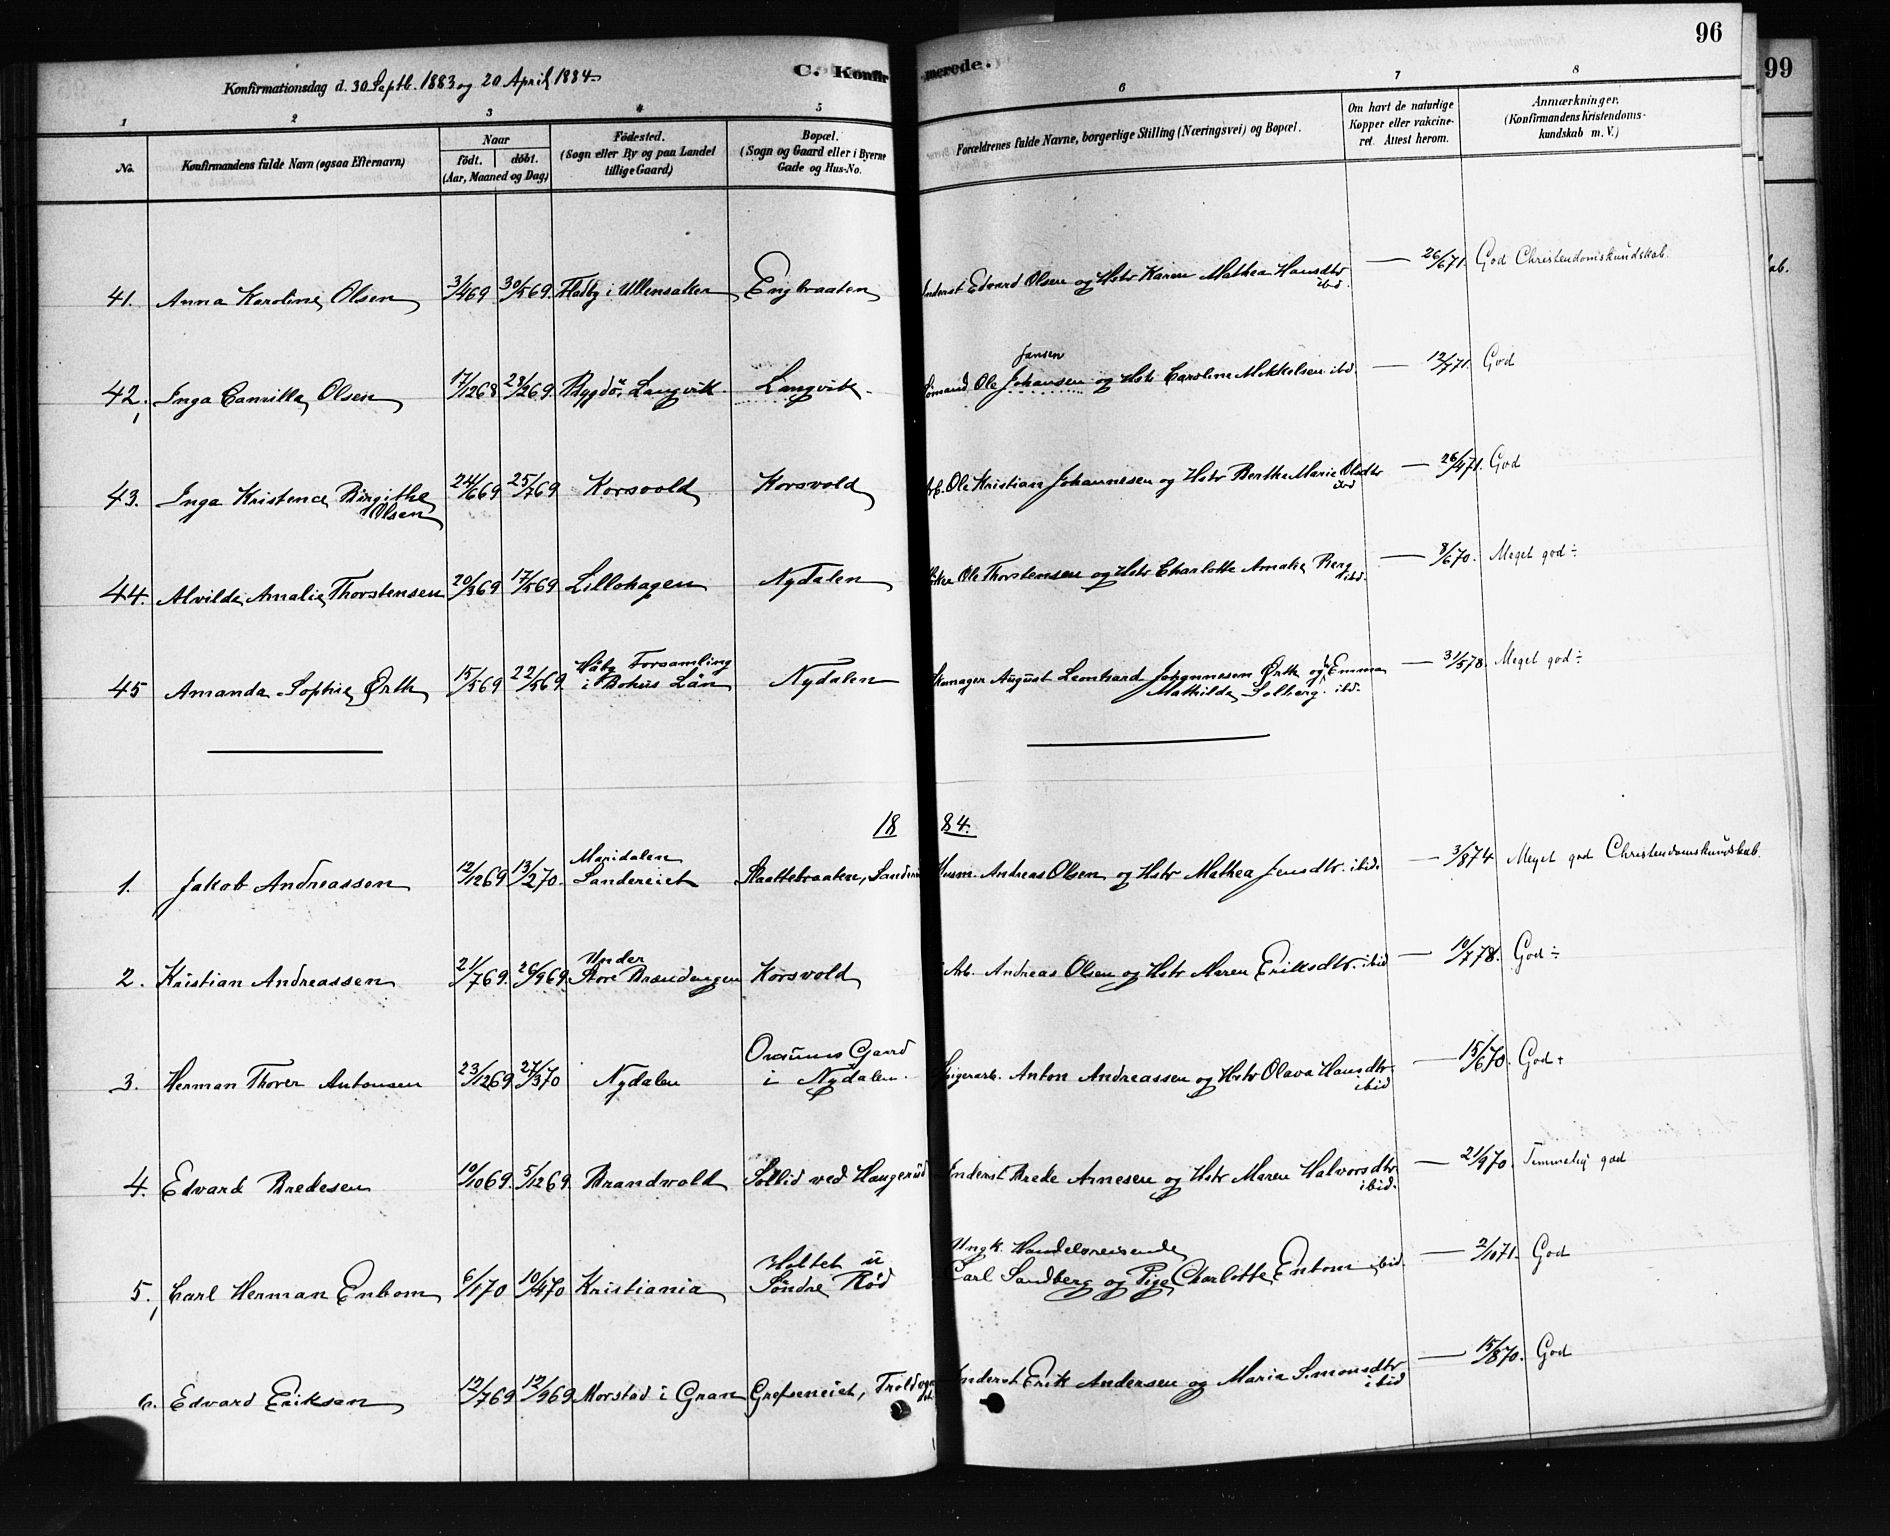 96
99
Konfirmationsdag d. 30 Septb. 1883 og 20 April 1884
C. Konfirmerede.
1 2 3 4 5 6 7 8
No. Konfirmandens fulde Navn (ogsaa Efternavn) Naar født. døbt. (Aar, Maaned og Dag) Fødested. (Sogn eller By og paa Landet tillige Gaard) Bopæl. (Sogn og Gaard eller i Byerne Gade og Hus-No. Forældrenes fulde Navne, borgerlige Stilling (Næringsvei) og Bopæl. Om havt de naturlige Kopper eller vakcineret. Attest herom. Anmærkninger. (Konfirmandens Kristendomskundskab m. V.)
41. Anna Karoline Olsen 3/4 69 30/5 69. Fladby i Ullensaker Engbraaten Inderst Edvard Olsen og Hstr Karen Mathea Hansdtr ibd. — 26/6 71. God Christendomskundskab.
42. Inga Camilla Olsen 17/12 68 28/2 69. Bygdö, Langvik Langvik Sömand Ole Johansen Jansen og Hstr Caroline Mikkelsen ibd. — 12/7 71. God
43. Inga Kristence Birgithe Olsen 24/6 69 25/7 69 Korsvold Korsvold Arb. Ole Kristian Johannesen og Hstr Berthe Marie Olsdtr ibd — 26/4 71. God
44. Alvilde Amalie Thorstensen 20/3 69 17/5 69 Lillohagen Nydalen Ole Thorstensen og Hstr Charlotte Amalie Berg ibd. — 8/6 70. Meget god ÷
45 Amanda Sophie Ørth 15/5 69 22/5 69. Håby Forsamling i Bohus Län Nydalen Skomager August Leonhard Johannesen Ørth og Emma Mathilde Solberg. ibd. — 31/5 78. Meget god ÷
18 84.
1. Jakob Andreassen 12/12 69 13/2 70. Maridalen Sandereiet Slaattebraaten, Husm. Andreas Olsen og Hstr Mathea Jensdtr. ibid. — 3/8 74 Meget god Christendomskundskab
2. Kristian Andreassen 21/7 69. 26/9 69. Under Store Brændengen Korsvold Arb. Andreas Olsen og Hstr Maren Eriksdtr. ibid — 10/7 78. God ÷
3. Herman Thorer Antonsen 23/12 69 27/3 70 Nydalen Gaard i Nydalen. Spigerarb. Anton Andreassen og Hstr Olava Hansdtr. ibid — 15/6 70. God +
4. Edvard Bredesen 10/10 69. 5/12 69. Brandvold Sollid ved Haugerud Inderst Brede Arnesen og Hstr Maren Halvorsdtr. ibid. — 21/9 70. Temmelig god
5. Carl Herman Enbom 6/1 70 10/4 70 Kristiania Holtet u Söndre Röd Ungk. Handelsreisende Carl Sandberg og Pige Charlotte Enbom ibid. — 2/10 71. God
6. Edvard Eriksen 12/7 69 12/9 69 Morstad i Gran Grefseneiet, Inderst Erik Andersen og Maria Simonsdtr ibid — 15/8 70. God